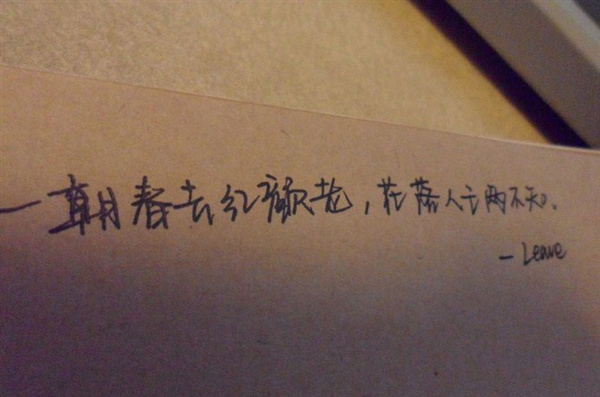 一朝春去红颜老，花落人亡两不知。
- Leave